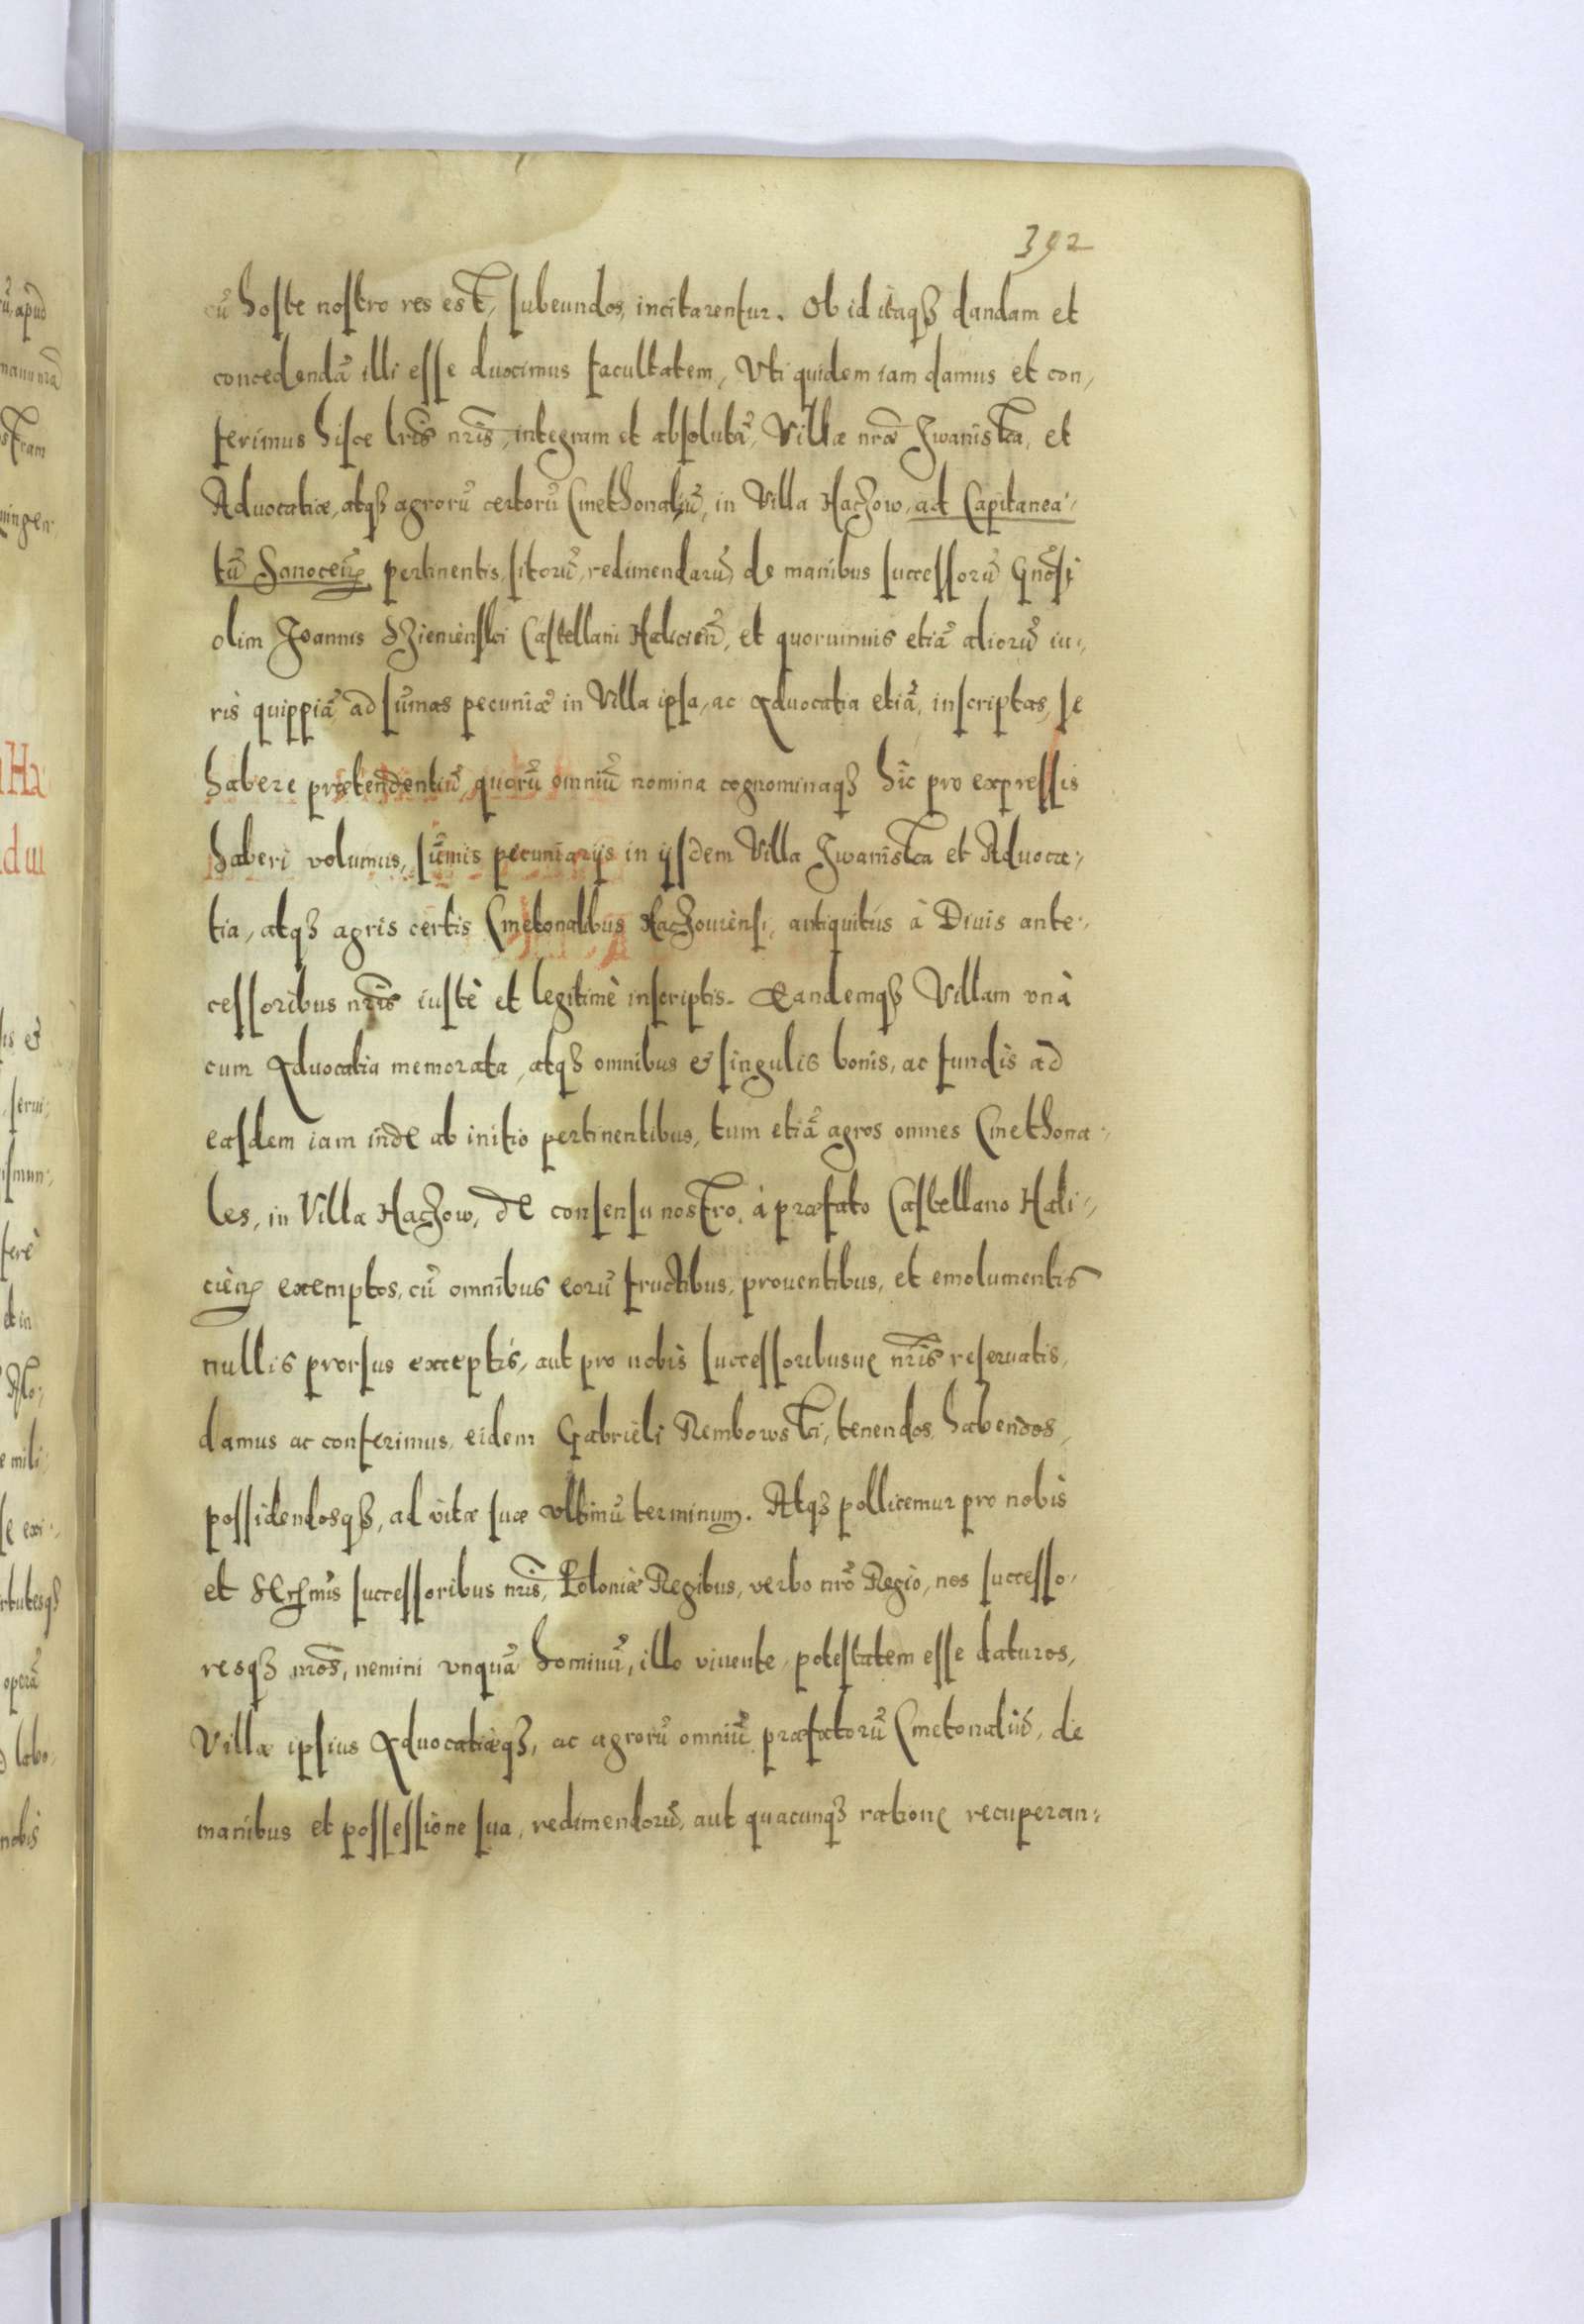 392
cũ hoste nostro res est, subeundos, incitarentur. Ob id itaq3 dandam et
concedendã illi esse duximus facultatem, Vti quidem iam damus et con,
ferimus hisce lris nris, integram et absolutã, Villæ nræ Iwaniska, et
Aduocatiæ, atq3 agrorũ certorũ Cmethonaliũ, in Villa Haczow, ad Capitanea,
tũ Sanocen̄ pertinentis, sitorũ, redimendarũ, de manibus successorũ Gnosi
olim Joannis Dziewienski Castellani Halicien̄, et quorumuis etiã aliorũ iu,
ris quippiã ad sũmas pecuniæ in Villa ipsa, ac Aduocatia etiã, inscriptas, se
habere prætendentiũ, quorũ omniũ nomina cognominaq3 hic pro expressis
haberi volumus, sũmis pecuniarijs in ijsdem Villa Iwaniska et Aduoca,
tia, atq3 agris certis Cmetonalibus Haczouiensi, antiquitus à Diuis ante,
cessoribus nris iustè et legitimè inscriptis. Eandemq3 Villam vnà
cum Aduocatia memorata, atq3 omnibus & singulis bonis, ac fundis ad
easdem iam inde ab initio pertinentibus, tum etiã agros omnes Cmethona,
les, in Villa Haczow, de consensu nostro, à præfato Castellano Hali,
cien̄ exemptos, cũ omnibus eorũ fructibus, prouentibus, et emolumentis
nullis prorsus exceptis, aut pro nobis successoribusue nris reseruatis,
damus ac conferimus, eidem Gabrieli Rembowski, tenendos, habendos,
possidendosq3, ad vitæ suæ vltimũ terminum. Atq3 pollicemur pro nobis
et Sermis successoribus nris, Poloniæ Regibus, verbo nro Regio, nos successo,
resq3 nros, nemini vnquã hominũ, illo viuente, potestatem esse daturos,
Villæ ipsius Aduocatiæq3, ac agrorũ omniũ præfatorũ Cmetonaliũ, de
manibus et possessione sua, redimendorũ, aut quacunq3 ratione recuperan,